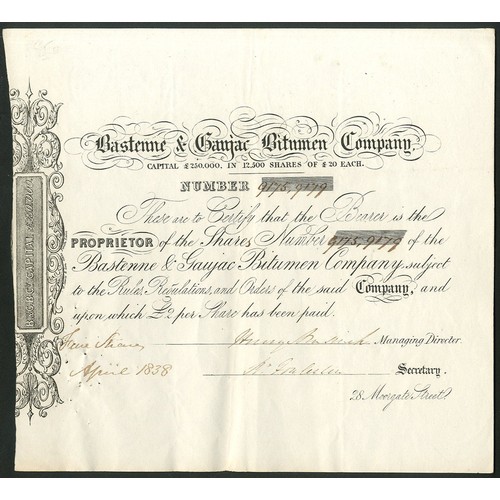 Bastenne & Gaujac Bitumen Company,
CAPITAL £250,000, IN 12,500 SHARES OF £20 EACH.
NUMBER 9175, 9179
These are to Certify that the Bearer is the
PROPRIETOR of the Shares Number 9175, 9179 of the
Bastenne & Gaujac Bitumen Company, subject
to the Rules, Regulations, and Orders of the said Company, and
upon which £2 per Share has been paid.
Five Shares
Managing Director.
April 1838
Secretary.
28 Moorgate Street